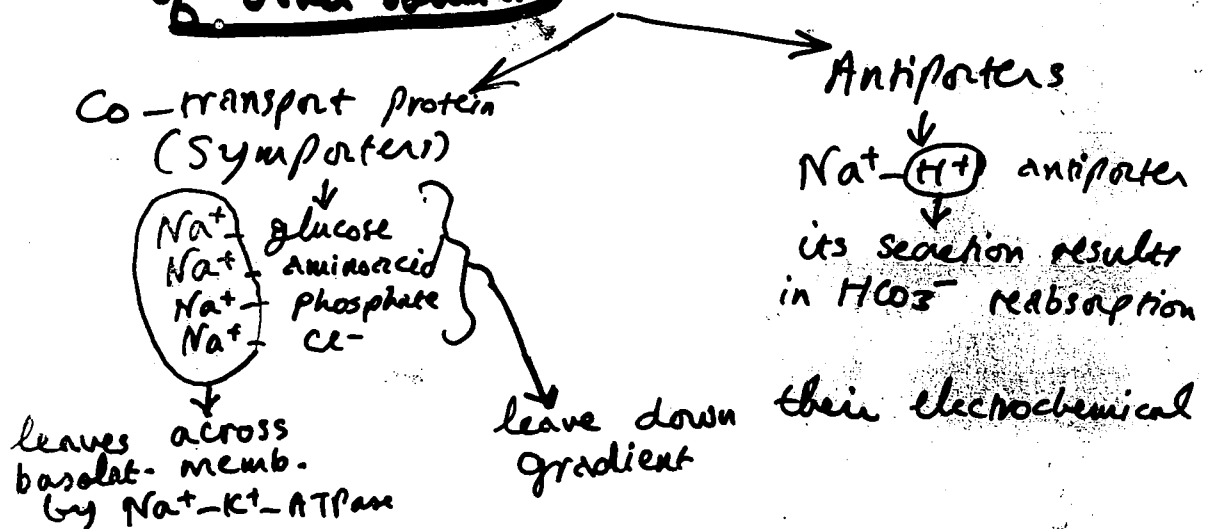 Co-transport protein
(Symporters)
Na+- glucose
Na+- aminoacid
Na+- phosphate
Na+- Cl-
leaves across
basolat. memb.
by Na+-K+-ATPase
leave down their electrochemical
gradient
Antiporters
Na+-H+ antiporter
its secretion results
in HCO3- reabsorption